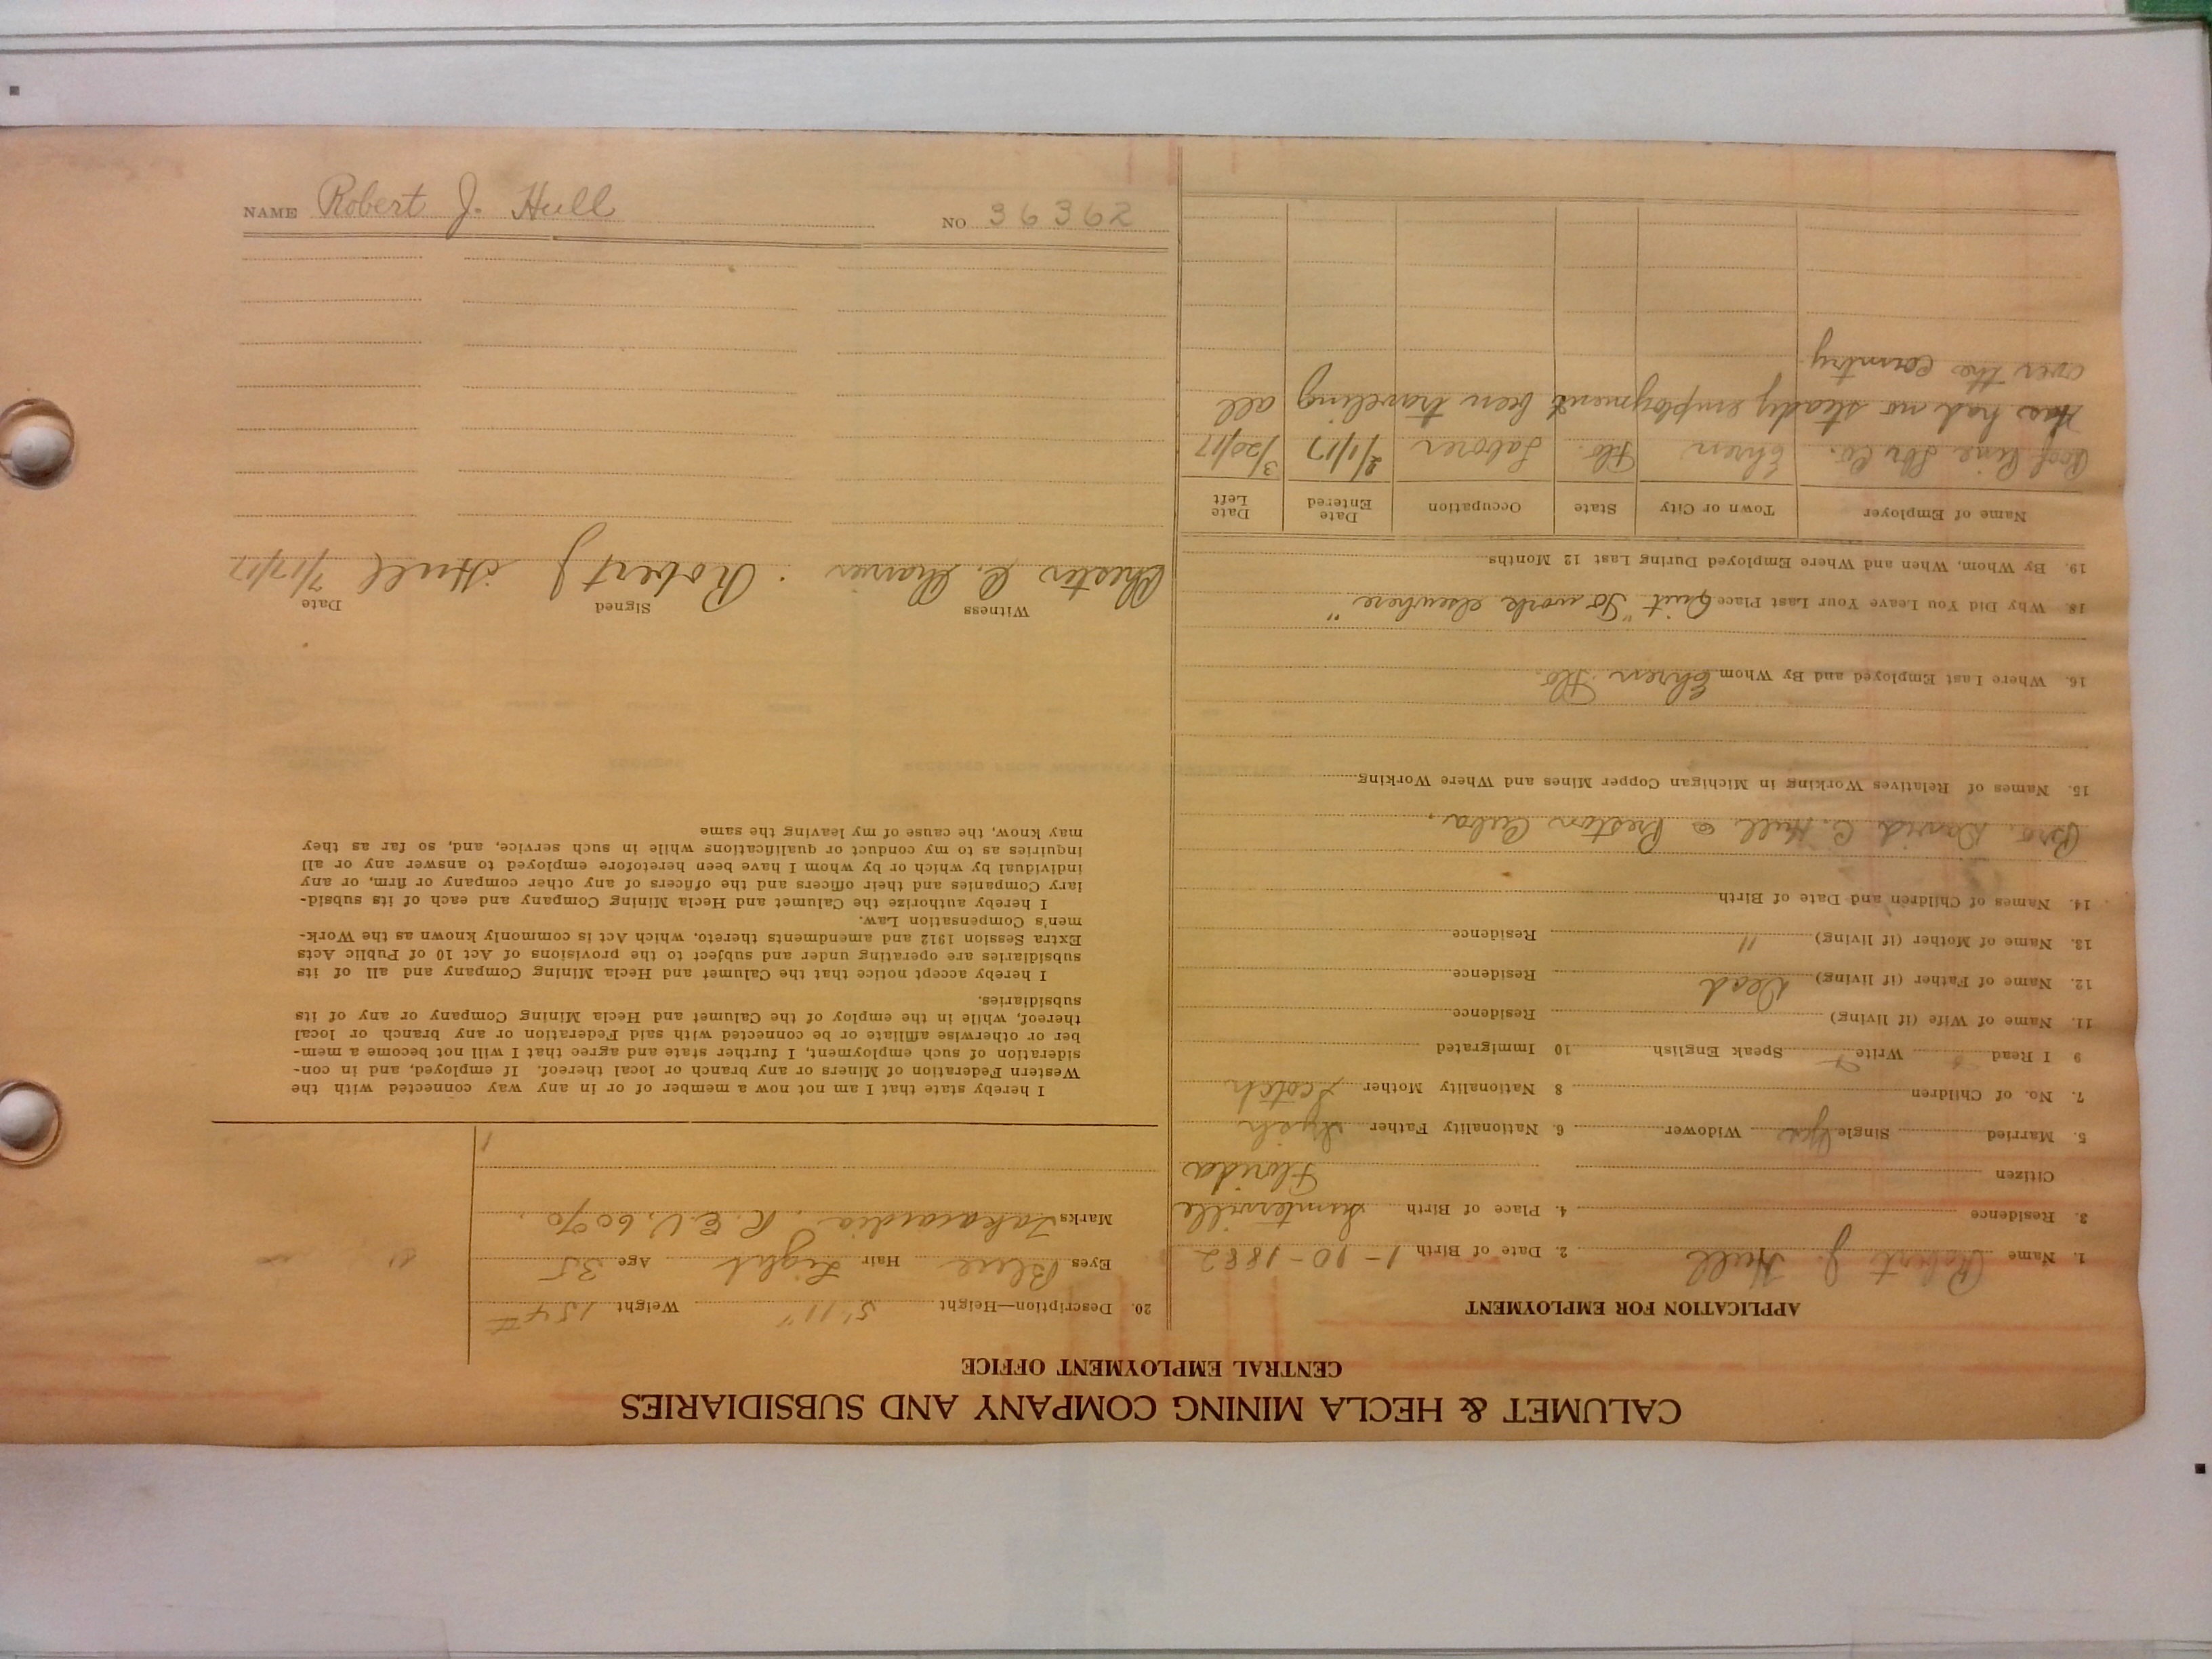 CALUMET & HECLA MINING COMPANY AND SUBSIDIARIES
CENTRAL EMPLOYMENT OFFICE
APPLICATION FOR EMPLOYMENT
1. Name Robert J. Hull 2. Date of Birth 1-10-1882
3. Residence 4. Place of Birth Sumterville
Citizen Florida
5. Married Single Yes Widower 6. Nationality Father
7. No. of Children 8 Nationality Mother Scotch
9 I Read Write Speak English 10 Immigrated
11. Name of Wife (if living) Residence
12. Name of Father (if living) Dead Residence
13. Name of Mother (if living) " Residence
14. Names of Children and Date of Birth
Bro. David C. Hull Preston Cuba.
15. Names of Relatives Working in Michigan Copper Mines and Where Working
16. Where Last Employed and By Whom Ehren Flo.
18. Why Did You Leave Your Last Place Quit "To work elsewhere"
19. By Whom, When and Where Employed During Last 12 Months
Name of Employer Town or City State Occupation Date Entered Date Left
Pine Lbr Co. Ehren Flo. Laborer 2/1/17 3/20/17
Has had no steady employment been traveling all
over the country
20. Description—Height 5'11" Weight 154#
Eyes Blue Hair Light Age 35
Marks Takacardia, R.E.V. 60%.
I hereby state that I am not now a member of or in any way connected with the
Western Federation of Miners or any branch or local thereof. If employed, and in con-
sideration of such employment, I further state and agree that I will not become a mem-
ber or otherwise affiliate or be connected with said Federation or any branch or local
thereof, while in the employ of the Calumet and Hecla Mining Company or any of its
subsidiaries.
I hereby accept notice that the Calumet and Hecla Mining Company and all of its
subsidiaries are operating under and subject to the provisions of Act 10 of Public Acts
Extra Session 1912 and amendments thereto, which Act is commonly known as the Work-
men's Compensation Law.
I hereby authorize the Calumet and Hecla Mining Company and each of its subsid-
iary Companies and their officers and the officers of any other company or firm, or any
individual by which or by whom I have been heretofore employed to answer any or all
inquiries as to my conduct or qualifications while in such service, and, so far as they
may know, the cause of my leaving the same
Witness Signed Date
Chester C. Robert J Hull 7/17/17
NAME Robert J. Hull NO 36362